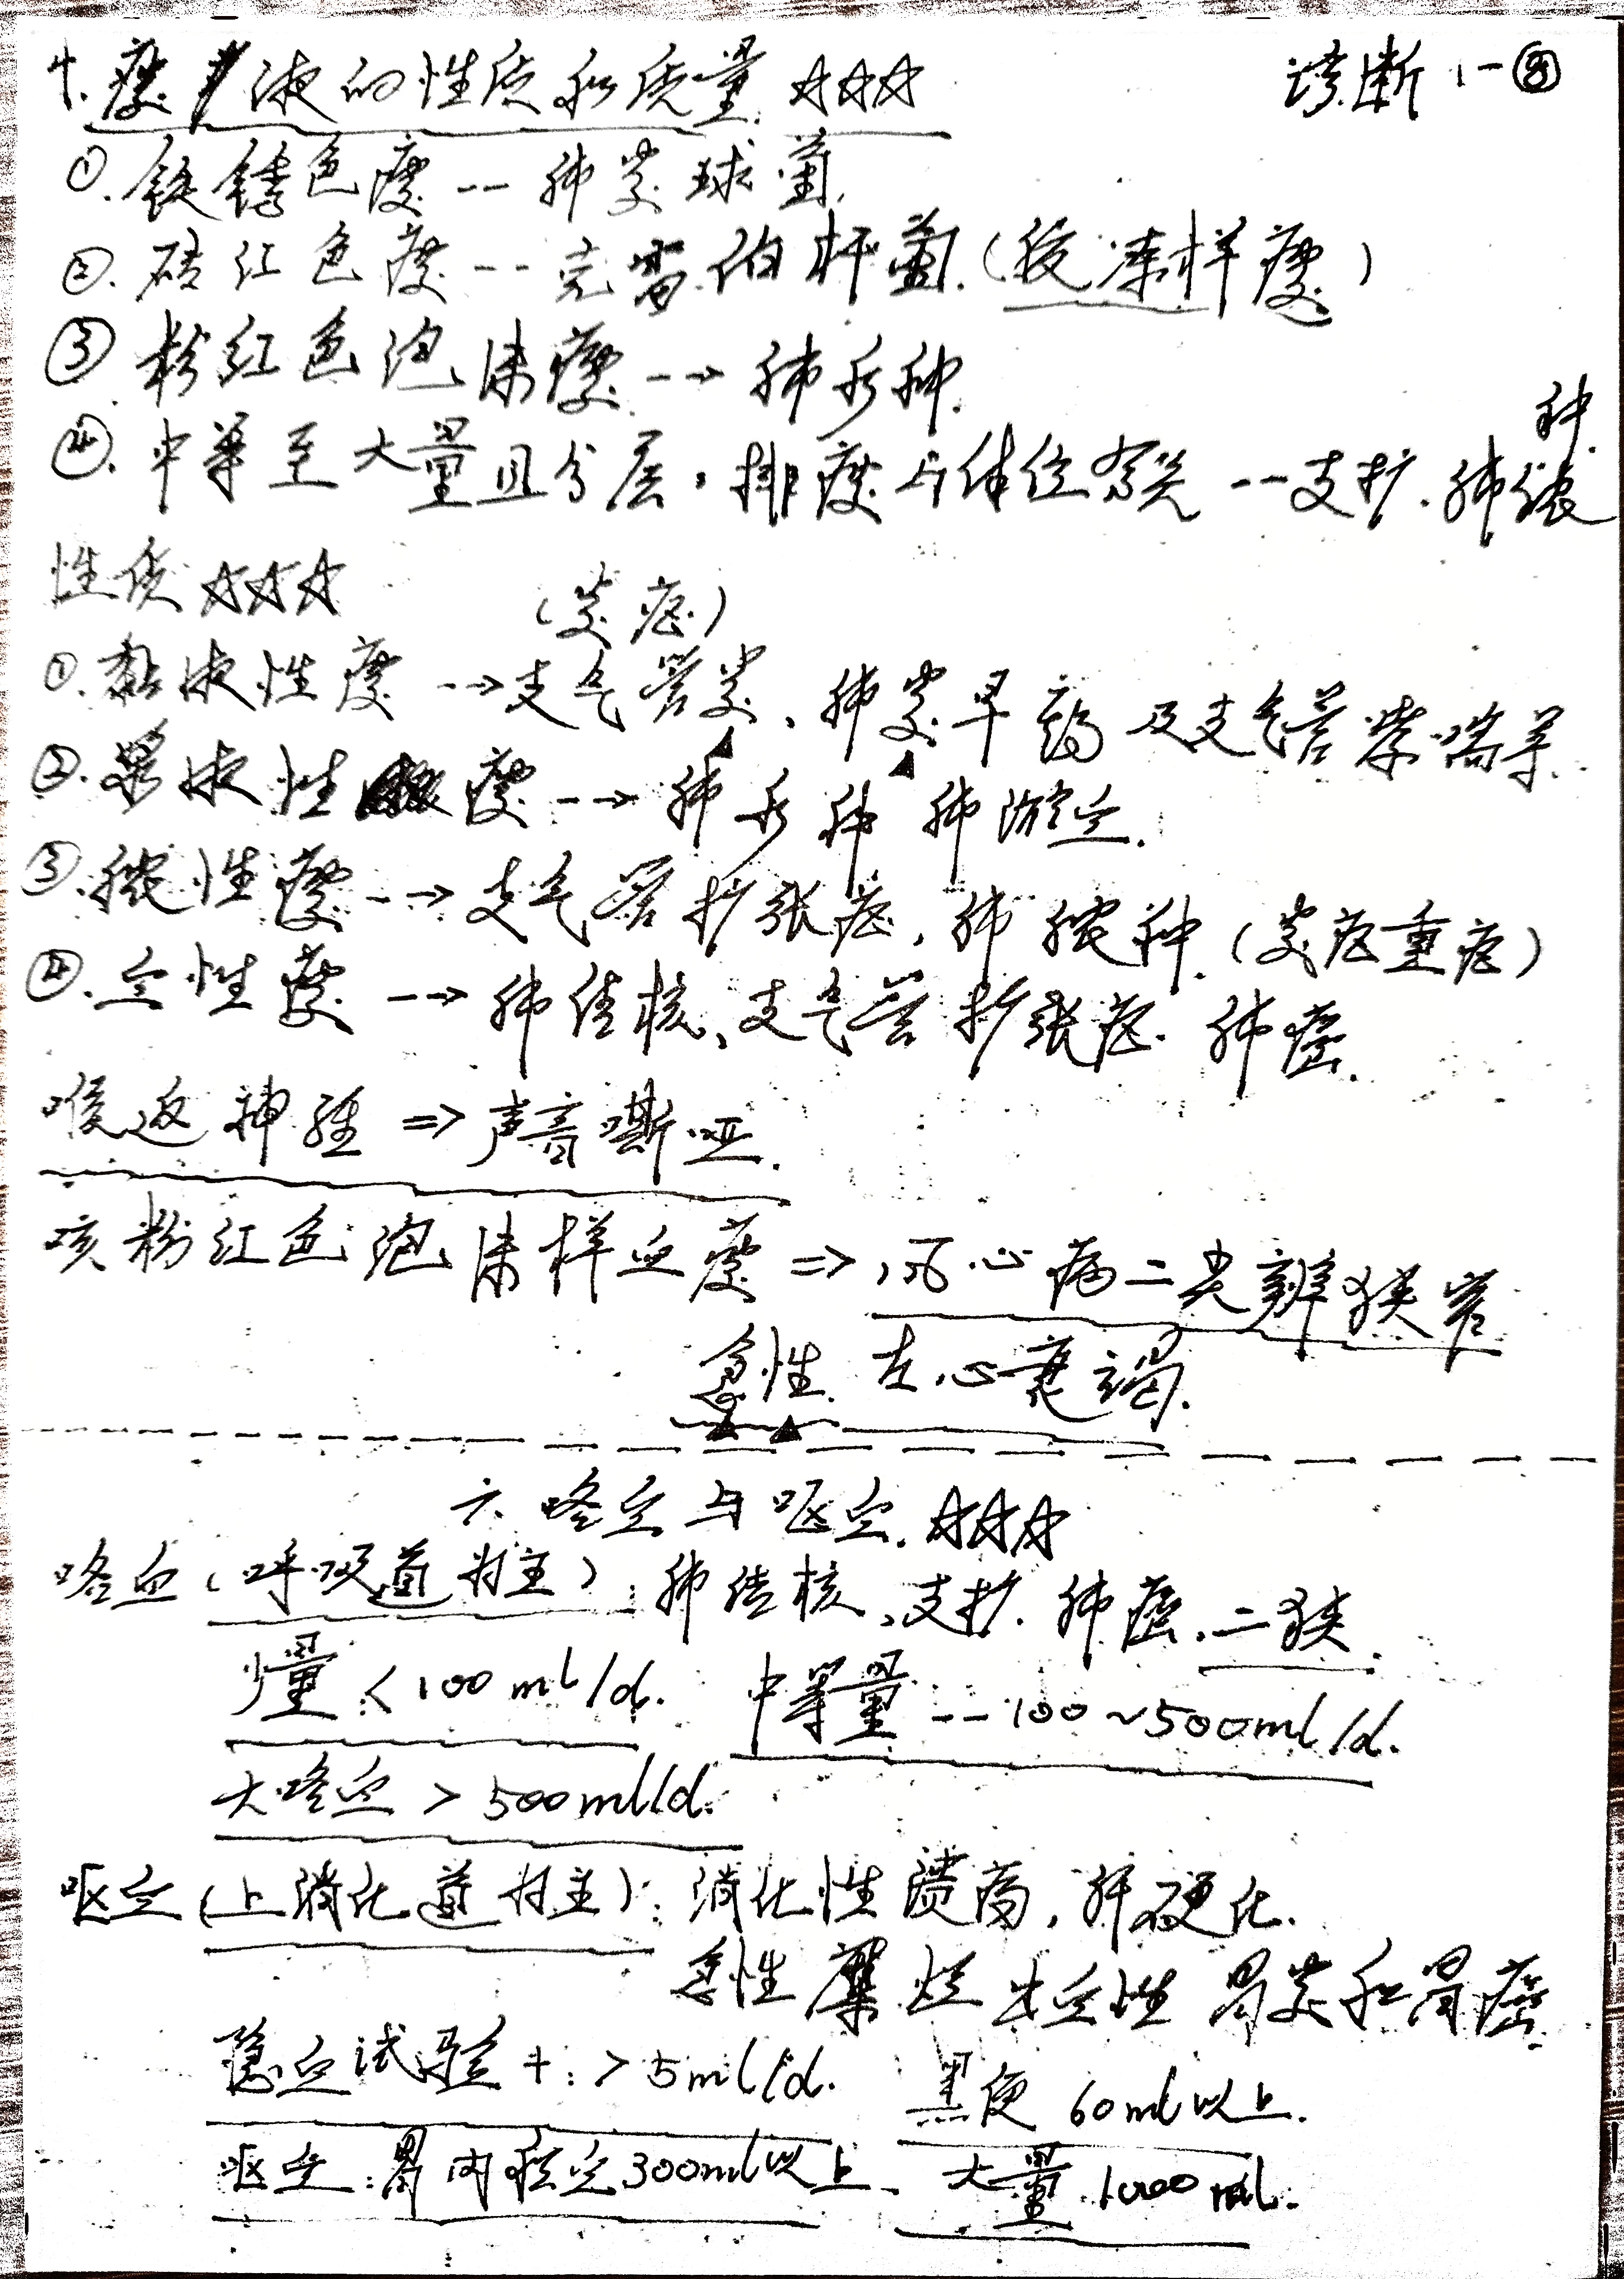 诊断 1-⑧
4. 痰液的性质和痰量 ☆☆☆
①. 铁锈色痰 -- 肺炎球菌.
②. 砖红色痰 -- 克雷伯杆菌. (胶冻样痰)
③. 粉红色泡沫痰 --→ 肺水肿.
④. 中等至大量且分层, 排痰与体位有关 -- 支扩. 肺脓肿.
性质 ☆☆☆
(炎症)
①. 黏液性痰 --→ 支气管炎、肺炎早期及支气管哮喘等.
②. 浆液性痰 --→ 肺水肿 肺淤血.
③. 脓性痰 --→ 支气管扩张症, 肺脓肿. (炎症重症)
④. 血性痰 --→ 肺结核、支气管扩张症. 肺癌.
喉返神经 => 声音嘶哑.
咳粉红色泡沫样血痰 => 风心病二尖瓣狭窄
急性左心衰竭.
六 咯血与呕血. ☆☆☆
咯血 (呼吸道为主): 肺结核、支扩. 肺癌. 二狭.
少量: < 100ml/d. 中等量 -- 100~500ml/d.
大咯血 > 500ml/d.
呕血 (上消化道为主): 消化性溃疡, 肝硬化.
急性糜烂出血性胃炎和胃癌.
隐血试验 +: > 5ml/d. 黑便 60ml以上.
呕血: 胃内积血300ml以上、大量 1000ml.